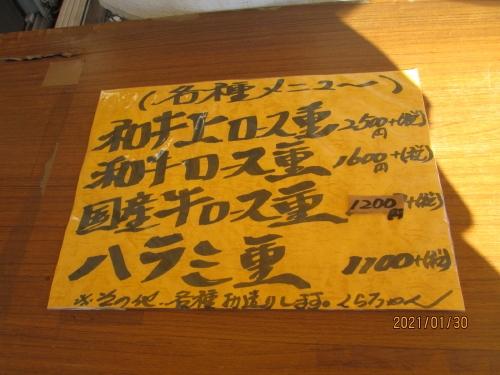 (各種メニュー)
和牛上ロース重 2500円+(税)
和牛ロース重 1600円+(税)
国産牛ロース重 1200円+(税)
ハラミ重 1100+(税)
※その他、各種お造りします。
2021/01/30